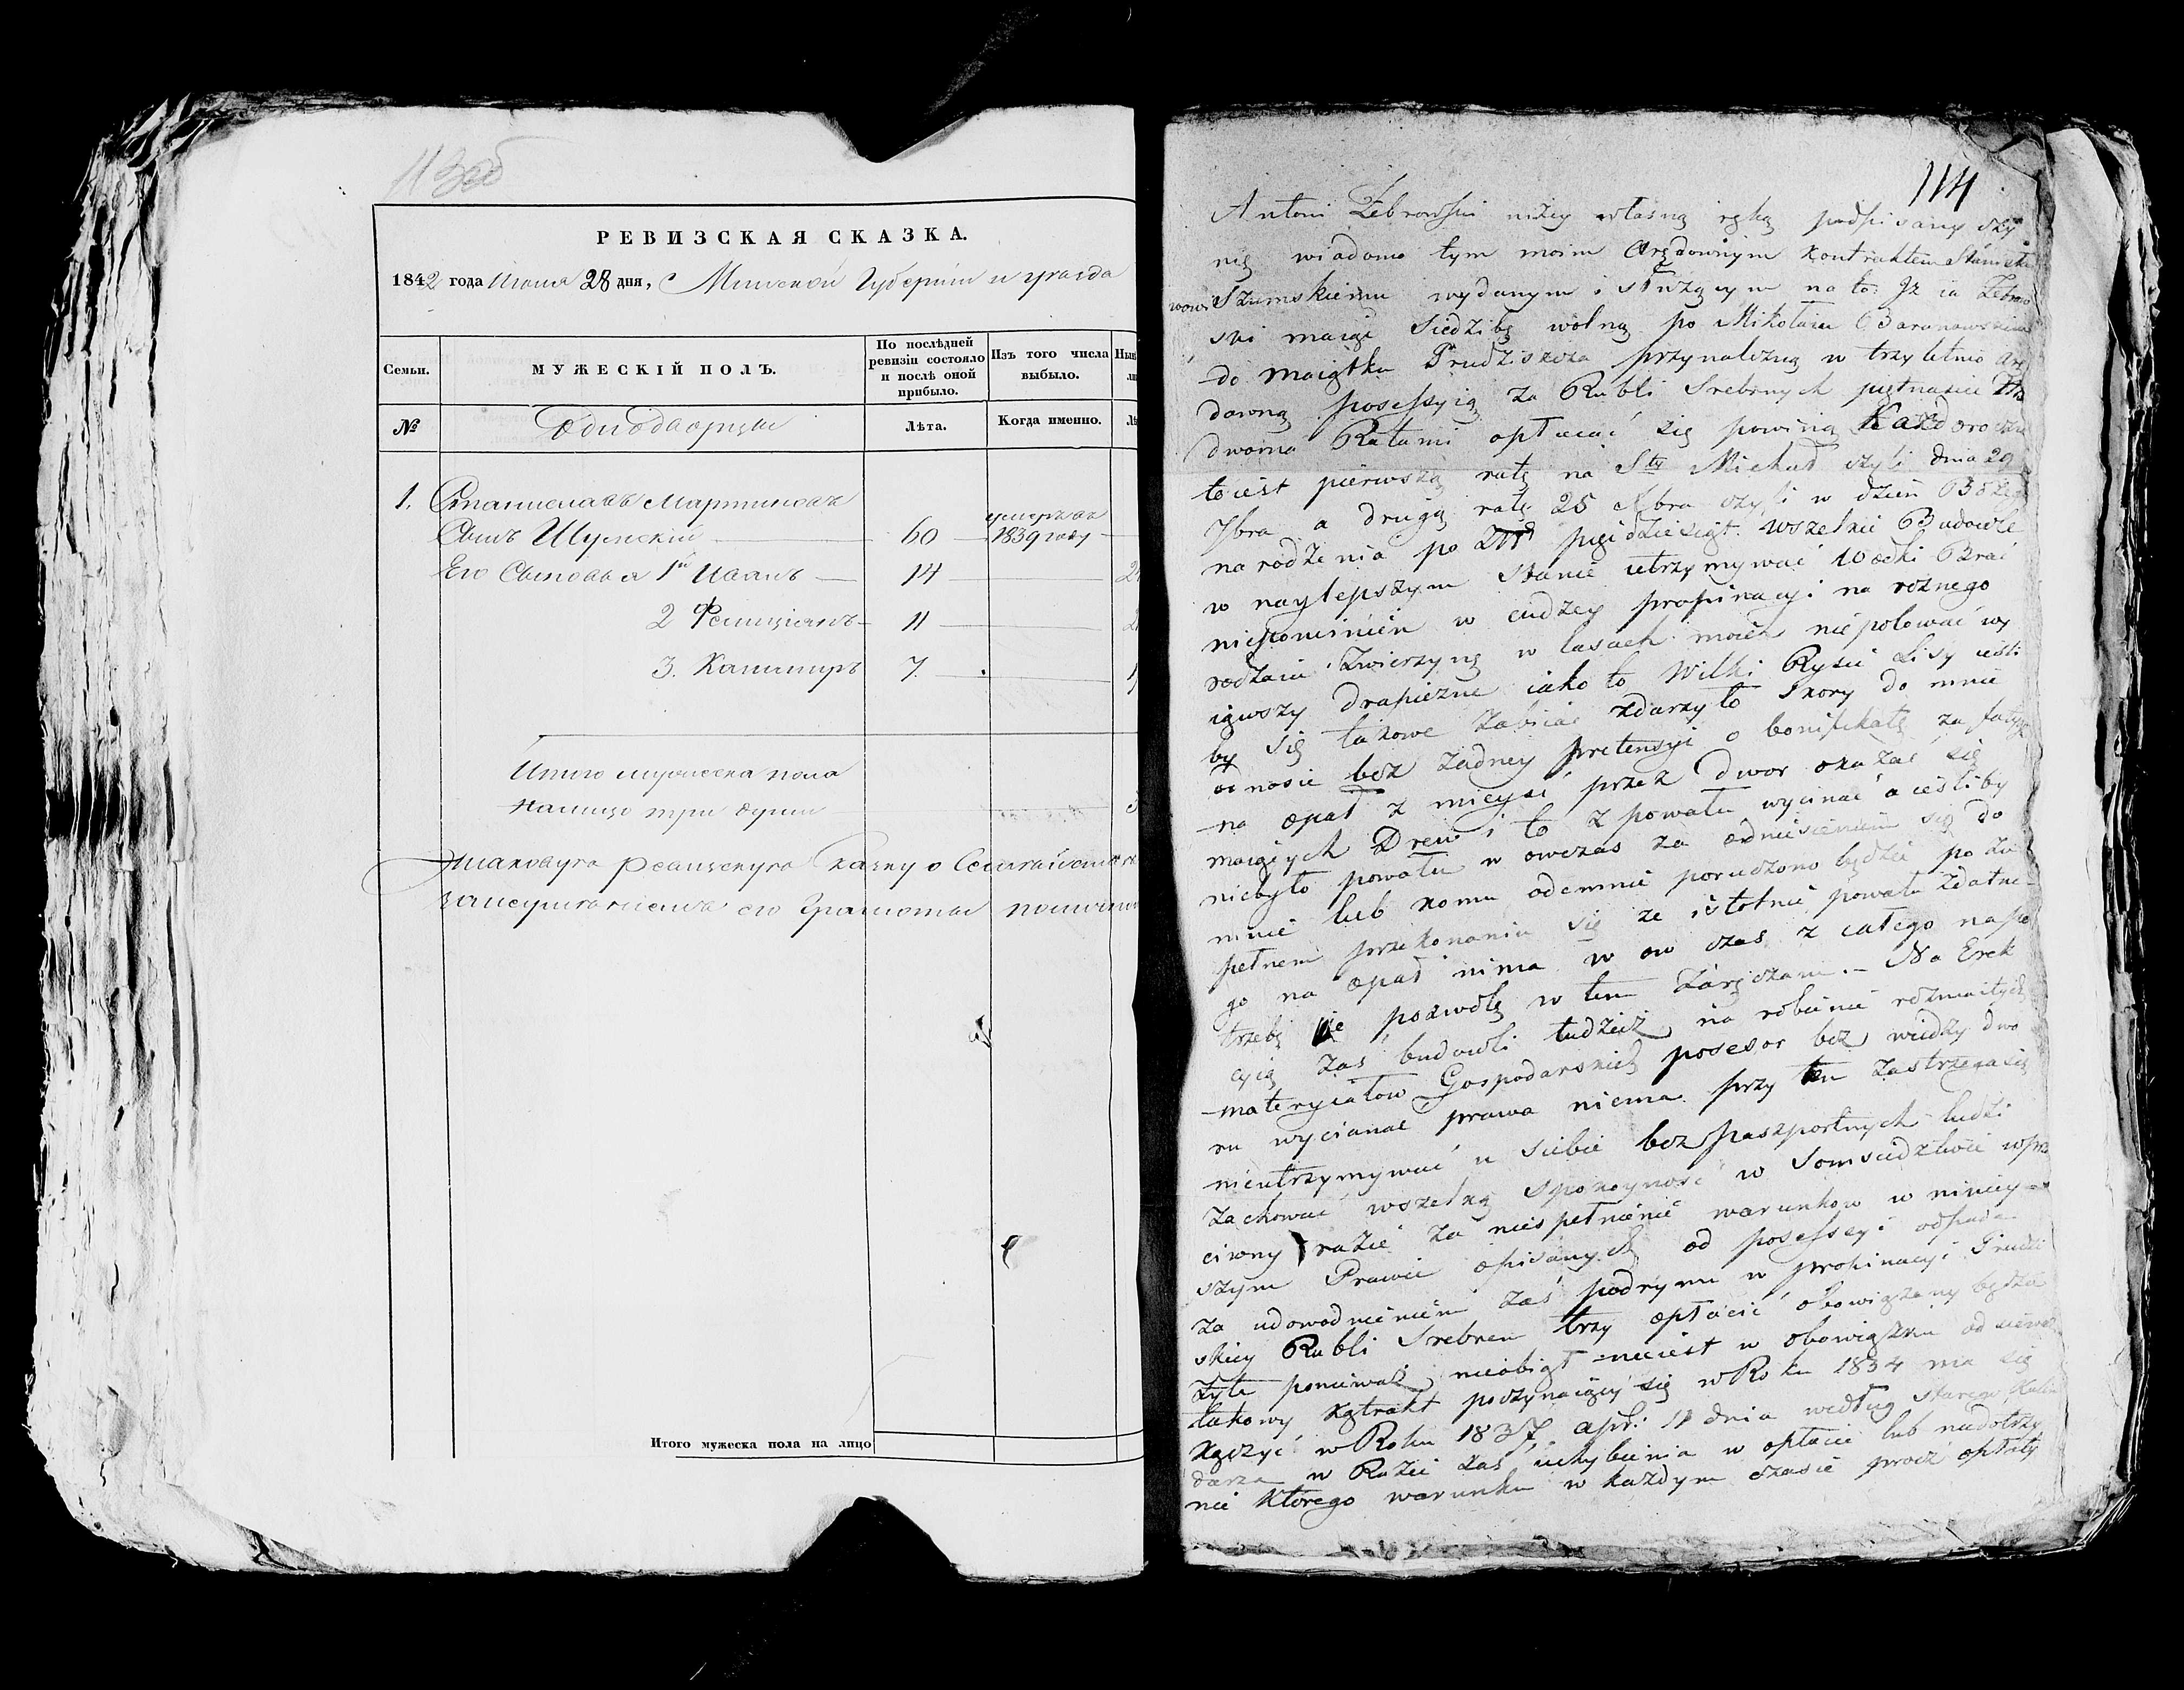 113об
РЕВИЗСКАЯ СКАЗКА.
1842 года Июня 28 дня, Минской Губернии и уезда
Семьи.
МУЖЕСКІЙ ПОЛЪ.
По послѣдней ревизіи состояло и послѣ оной прибыло.
Изъ того числа выбыло.
№
Однодворцы
Лѣта.
Когда именно.
1. Станиславъ Мартиновъ
умеръ въ
Сынъ Шумскій 60 1839 году
Его Сыновья 1й Иванъ 14
2 Фелиціянъ 11
3. Казимиръ 7.
Итого мужеска пола
налицо три души
Таковую ревизскую сказку о
его грамоты
Итого мужеска пола на лицо
114
Antoni Żebrowski niżey własną ręką podpisany czy
nię wiadomo tym moim Arędownym kontraktem Stanisła
wowi Szumskiemu wydanym i służącym na to Iż ia Żebrow
ski maiąc Siedzibę wolną po Mikołaiu Baranowskim
do maiątku Prudziszcza przynależną w trzyletnio arę
downą possessyią za Rubli Srebrnych piętnascie
dwoma Ratami opłacać się powinną Każdorocznie
toiest pierwszą ratę na Sty Michał czyli dnia 29
7bra a drugą ratę 25 Xbra czyli w dzień Bożego
narodzenia po pięcdziesiąt. Wszelkie Budowle
w naylepszym stanie utrzymywać Wodki Brać
niepowinien w cudzey propinacyi na rożnego
rodzaiu Zwierzynę w lasach moich niepolować wy
iąwszy drapieżne iako to Wilki Rysie Lisy iesli
by się takowe zabiiać zdarzyło Skory do mnie
odnosic bez żadney pretensyi o bonifikatę za fatygę
na opał z mieysc przez Dwor okazać się
maiących Drew i to z powału wycinać a ieśliby
niebyło powału w owczas za odniesieniem się do
mnie lub komu odemnie poruczono będzie po zu
pełnem przekonaniu się że istotnie powału zdatne
go na opał nima w ow czas z całego na po
trzebę pozwolę w tem Zaręczam. – Na Erek
cyią zaś budowli tudzież na robienie rozmaitych
materyiałow Gospodarskich posesor bez wiedzy dwo
ru wycianać prawa niema przy tem zastrzega się
nieutrzymywać u siebie bezpaszportnych ludzi
zachować wszelką spokoynosc w Somsiedztwie w prze
ciwny razie za niespełnienie warunkow w niniey
szym Prawie opisanych od possessyi odpada
za udowodnieniem zaś podrymu w propinacyi Prudzi
skiey Rubli Srebrem trzy opłacić obowiązany będzie
Żyta poniewaz nieobiął nieiest w obowiązku od
takowy kątrakt poczynaiący się w Roku 1834 ma się
kączyć w Roku 1837 apr: 11 dnia według starego Kalen
darza w Razie zaś uchybienia w opłacie lub niedotrzy
nie ktorego warunku w każdym czasie procz opłaty